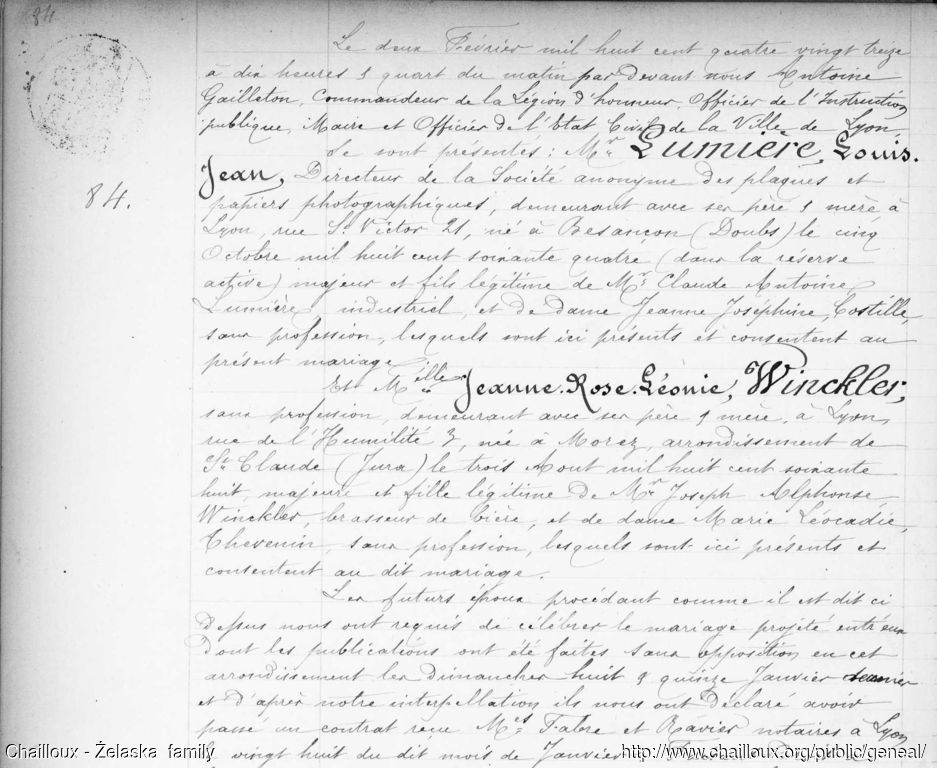 84
Le deux Février mil huit cent quatre vingt treize
à dix heures & quart du matin par devant nous Antoine
Gailleton, Commandeur de la Légion d'honneur, Officier de l'Instruction
publique, Maire et Officier de l'état Civil de la Ville de Lyon,
Se sont présentés : Mr. Lumière, Louis.
Jean, Directeur de la Société anonyme des plaques et
84.
papiers photographiques, demeurant avec ses père & mère à
Lyon, rue St Victor 21, né à Besançon (Doubs) le cinq
Octobre mil huit cent soixante quatre (dans la réserve
active) majeur et fils légitime de Mr. Claude Antoine
Lumière, industriel, et de dame Jeanne Joséphine, Costille,
sans profession, lesquels sont ici présents et consentent au
présent mariage.
Et Melle Jeanne. Rose. Léonie, Winckler,
sans profession, demeurant avec ses père & mère, à Lyon
rue de l'Humilité 3, née à Morez, arrondissement de
St. Claude (Jura) le trois Aout mil huit cent soixante
huit, majeure et fille légitime de Mr. Joseph Alphonse
Winckler, brasseur de bière, et de dame Marie Léocadie,
Thevenin, sans profession, lesquels sont ici présents et
consentent au dit mariage.
Les futurs époux procédant comme il est dit ci
dessus nous ont requis de célébrer le mariage projeté entr'eux
dont les publications ont été faites sans opposition en cet
arrondissement les dimanches huit & quinze Janvier dernier
et d'après notre interpellation ils nous ont déclaré avoir
passé un contrat reçu Mes. Fabre et Ravier notaires à Lyon
le vingt huit du dit mois de Janvier
Chailloux - Želaska family
http://www.chailloux.org/public/geneal/